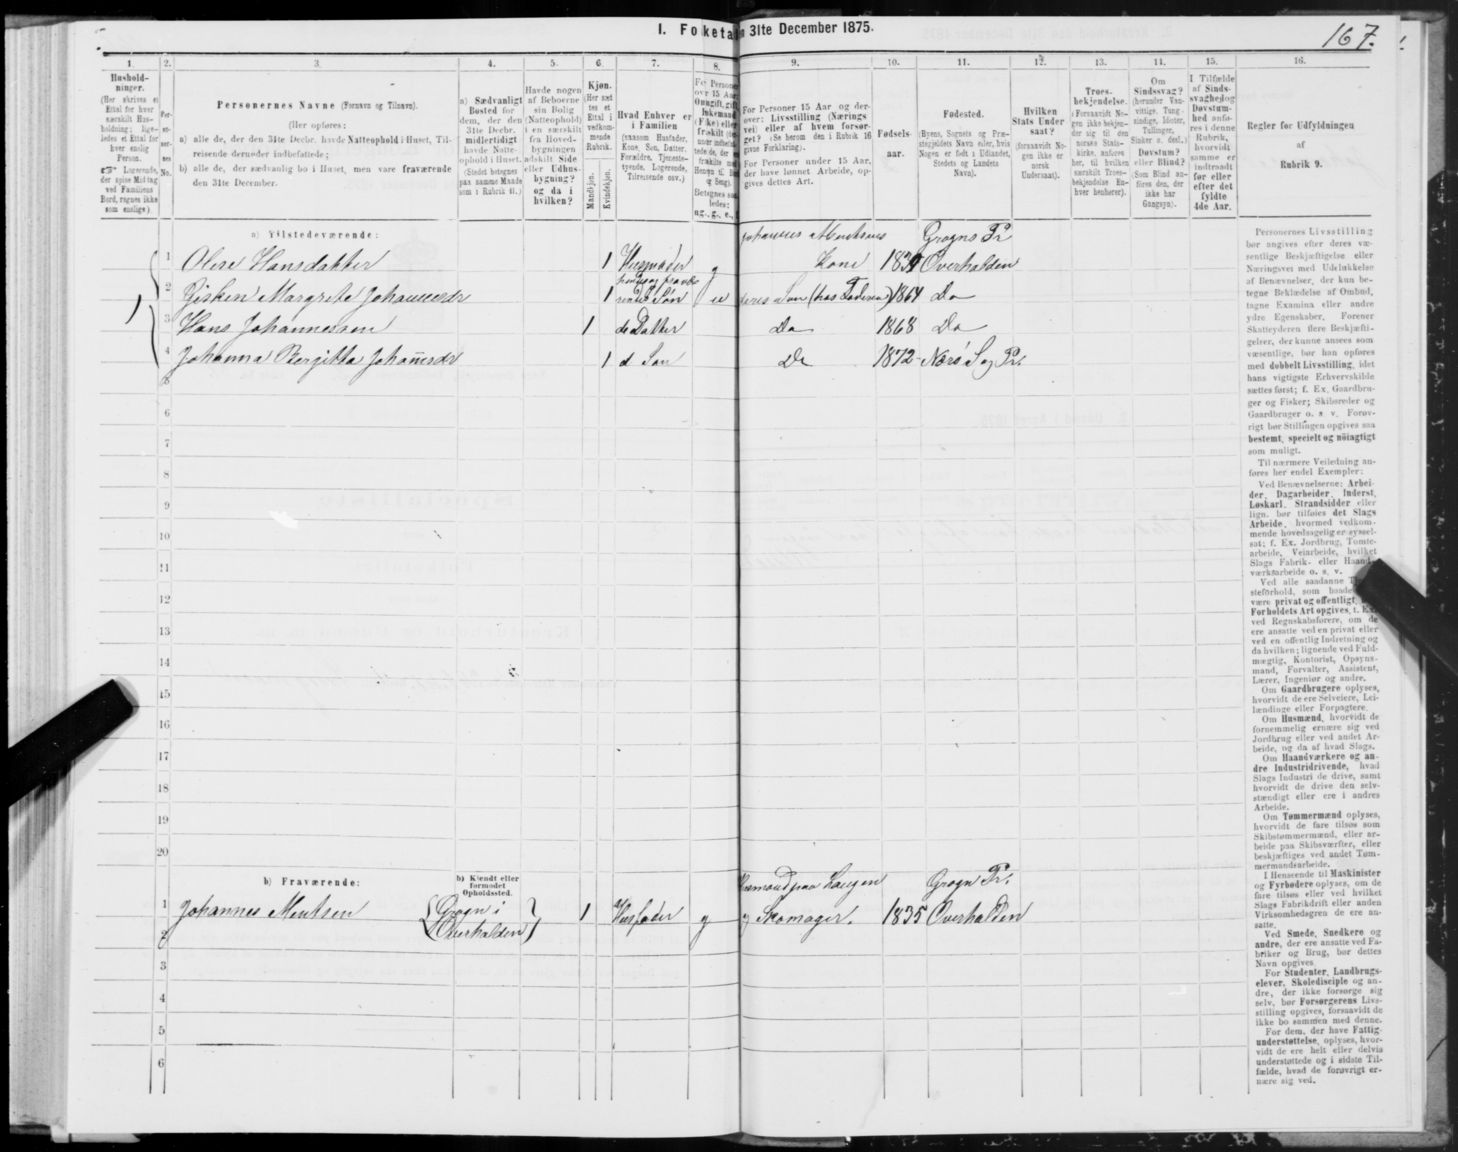 I. Folketa n 31te December 1875.
167.
1.
2.
3.
4.
5.
6.
7.
8.
9.
10.
11.
12.
13.
14.
15.
16.
Hushold-
ninger.
(Her skrives et
Ettal for hver
særskilt Hus-
holdning; lige-
ledes et Ettal for
hver enslig
Person.
☞ Logerende,
der spise Middag
ved Familiens
Bord, regnes ikke
som enslige)
Per-
so-
ner-
nes
No.
Personernes Navne (Fornavn og Tilnavn).
(Her opføres:
a) alle de, der den 31te Decbr. havde Natteophold i Huset, Til-
reisende derunder indbefattede;
b) alle de, der sædvanlig bo i Huset, men vare fraværende
den 31te December.
a) Sædvanligt
Bosted for
dem, der den
31te Decbr.
midlertidigt
havde Natte-
ophold i Huset.
(Stedet betegnes
paa samme Maade
som i Rubrik 11.)
Havde nogen
af Beboerne
sin Bolig
(Natteophold)
i en særskilt
fra Hoved-
bygningen
adskilt Side
eller Udhus-
bygning?
og da i
hvilken?
Kjøn.
(Her sæt-
tes et
Ettal i
vedkom-
mende
Rubrik.
Mandkjøn.
Kvindekjøn.
Hvad Enhver er
i Familien
(saasom Husfader,
Kone, Søn, Datter,
Forældre, Tjeneste-
tyende, Logerende,
Tilreisende osv.)
For Person
over 15 Aar
Betegnes saa-
ledes:
ug., g., e.,
For Personer 15 Aar og der-
over: Livsstilling (Nærings-
vei) eller af hvem forsør-
get? (Se herom den i Rubrik 16
givne Forklaring).
For Personer under 15 Aar,
der have lønnet Arbeide, op-
gives dettes Art.
Fødsels-
aar.
Fødested.
(Byens, Sognets og Præ-
stegjeldets Navn eller, hvis
Nogen er født i Udlandet,
Stedets og Landets
Navn).
Hvilken
Stats Under-
saat?
(foraavidt No-
gen ikke er
norsk
Undersaat).
Troes-
bekjendelse.
(Foraavidt No-
gen ikke bekjen-
der sig til den
norske Stats-
kirke, anføres
her, til hvilken
særskilt Troes-
bekjendelse En-
hver henhører).
Om
Sindssvag?
(herunder Van-
vittige, Tung-
sindige, Idioter,
Tullinger,
Sinker o. desl.)
Døvstum?
eller Blind?
(Som Blind an-
føres den, der
ikke har
Gangsyn).
I Tilfælde
af Sinds-
svaghed og
Døvstum-
hed anfø-
res i denne
Rubrik,
hvorvidt
samme er
indtraadt
før eller
efter det
fyldte
4de Aar.
Regler for Udfyldningen
af
Rubrik 9.
a) Tilstedeværende:
1 Olise Hansdatter 1 Husmoder g Johannes Mentsens Kone 1834 Grogns Pr Overhalden
2 Gjisken Margrete Johannesdr 1 Søn deres Søn 1864 Do
1
3 Hans Johannessen 1 Datter Do 1868 Do
4 Johanna Bergitta Johañesdr 1 d Søn Do 1872 Nærö S og Pr.
5
6
7
8
9
10
11
12
13
14
15
16
17
18
19
20
b) Fraværende:
b) Kjendt eller
formodet
Opholdssted.
1 Johannes Mentsen Grogn i Overhalden 1 Husfader g Husmand paa Haugen og Skomager. 1835 Grogn Pr. Overhalden
2
3
4
5
6
Personernes Livsstilling
bør angives efter deres væ-
sentlige Beskjæftigelse eller
Næringsvei med Udelukkelse
af Benævnelser, der kun be-
tegne Beklædelse af Ombud,
tagne Examina eller andre
ydre Egenskaber. Forener
Skatteyderen flere Beskjæfti-
gelser, der kunne ansees som
væsentlige, bør han opføres
med dobbelt Livsstilling, idet
hans vigtigste Erhvervskilde
sættes først; f. Ex. Gaardbru-
ger og Fisker; Skibsreder og
Gaardbruger o. s. v. Forøv-
rigt bør Stillingen opgives saa
bestemt, specielt og nöiagtigt
som muligt.
Til nærmere Veiledning an-
føres her endel Exempler:
Ved Benævnelserne: Arbei-
der, Dagarbeider, Inderst,
Løskarl, Strandsidder eller
lign. bør tilføies det Slags
Arbeide, hvormed vedkom-
mende hovedsagelig er syssel-
sat; f. Ex. Jordbrug, Tomte-
arbeide, Veiarbeide, hvilket
Slags Fabrik- eller Haand-
værksarbeide o. s. v.
Ved alle saadanne
steforhold, som baade
være privat og offentligt,
Forholdets Art opgives, t. Ex.
ved Regnskabsførere, om de
ere ansatte ved en privat eller
ved en offentlig Indretning og
da hvilken; lignende ved Fuld-
mægtig, Kontorist, Opsyns-
mand, Forvalter, Assistent,
Lærer, Ingeniør og andre.
Om Gaardbrugere oplyses,
hvorvidt de ere Selveiere, Lei-
lændinge eller Forpagtere.
Om Husmænd, hvorvidt de
fornemmelig ernære sig ved
Jordbrug eller ved andet Ar-
beide, og da af hvad Slags.
Om Haandværkere og an-
dre Industridrivende, hvad
Slags Industri de drive, samt
hvorvidt de drive den selv-
stændigt eller ere i andres
Arbeide.
Om Tømmermænd oplyses,
hvorvidt de fare tilsøs som
Skibstømmermænd, eller ar-
beide paa Skibsværfter, eller
beskjæftiges ved andet Tøm-
mermandsarbeide.
I Henseende til Maskinister
og Fyrbødere oplyses, om de
fare tilsøs eller ved hvilket
Slags Fabrikdrift eller anden
Virksomhed de ere an-
satte.
Ved Smede, Snedkere og
andre, der ere ansatte ved Fa-
briker og Brug, bør dettes
Navn opgives.
For Studenter, Landbrugs-
elever, Skoledisciple og an-
dre, der ikke forsørge sig
selv, bør Forsørgerens Livs-
stilling opgives, forsaavidt de
ikke bo sammen med denne.
For dem, der have Fattig-
understøttelse, oplyses, hvor-
vidt de ere helt eller delvis
understøttede og i sidste Til-
fælde, hvad de forøvrigt er-
nære sig ved.